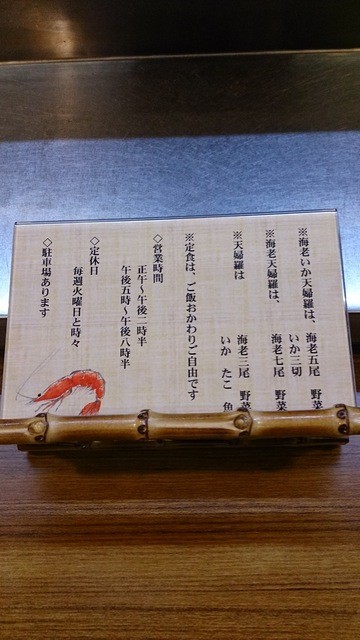 ※海老いか天婦羅は、海老五尾 野菜
いか三切
※海老天婦羅は、 海老七尾 野菜
※天婦羅は 海老三尾 野菜
いか たこ 魚
※定食は、ご飯おかわりご自由です
◇営業時間
正午〜午後二時半
午後五時〜午後八時半
◇定休日
毎週火曜日と時々
◇駐車場あります